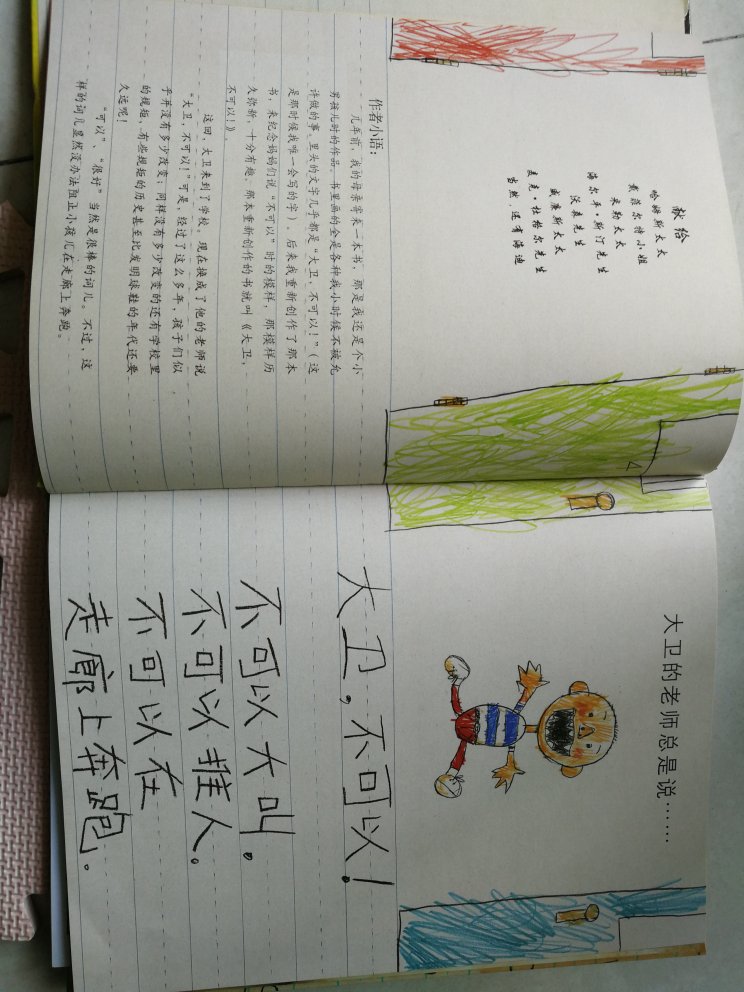 献给
哈姆斯太太
戴菲尔特小姐
米勒太太
海尔辛·斯汀先生
沃森先生
威廉斯太太
麦克·杜格尔先生
当然，还有海迪
作者小语：
几年前，我的母亲寄来一本书，那是我还是个小
男孩儿时的作品。书里画的全是各种我小时候不被允
许做的事，里头的文字几乎都是“大卫，不可以！”（这
是那时候我唯一会写的字）。后来我重新创作了那本
书，来纪念妈妈们说“不可以”时的模样，那模样历
久弥新，十分有趣。那本重新创作的书就叫《大卫，
不可以！》。
这回，大卫来到了学校。现在换成了他的老师说
“大卫，不可以！”可是，经过了这么多年，孩子们似
乎并没有多少改变；同样没有多少改变的还有学校里
的规矩，有些规矩的历史甚至比发明球鞋的年代还要
久远呢！
“可以”、“很好”当然是很棒的词儿。不过，这
样的词儿显然没办法阻止小孩儿在走廊上奔跑。
大卫的老师总是说……
大卫，不可以！
不可以大叫。
不可以推人。
不可以在
走廊上奔跑。